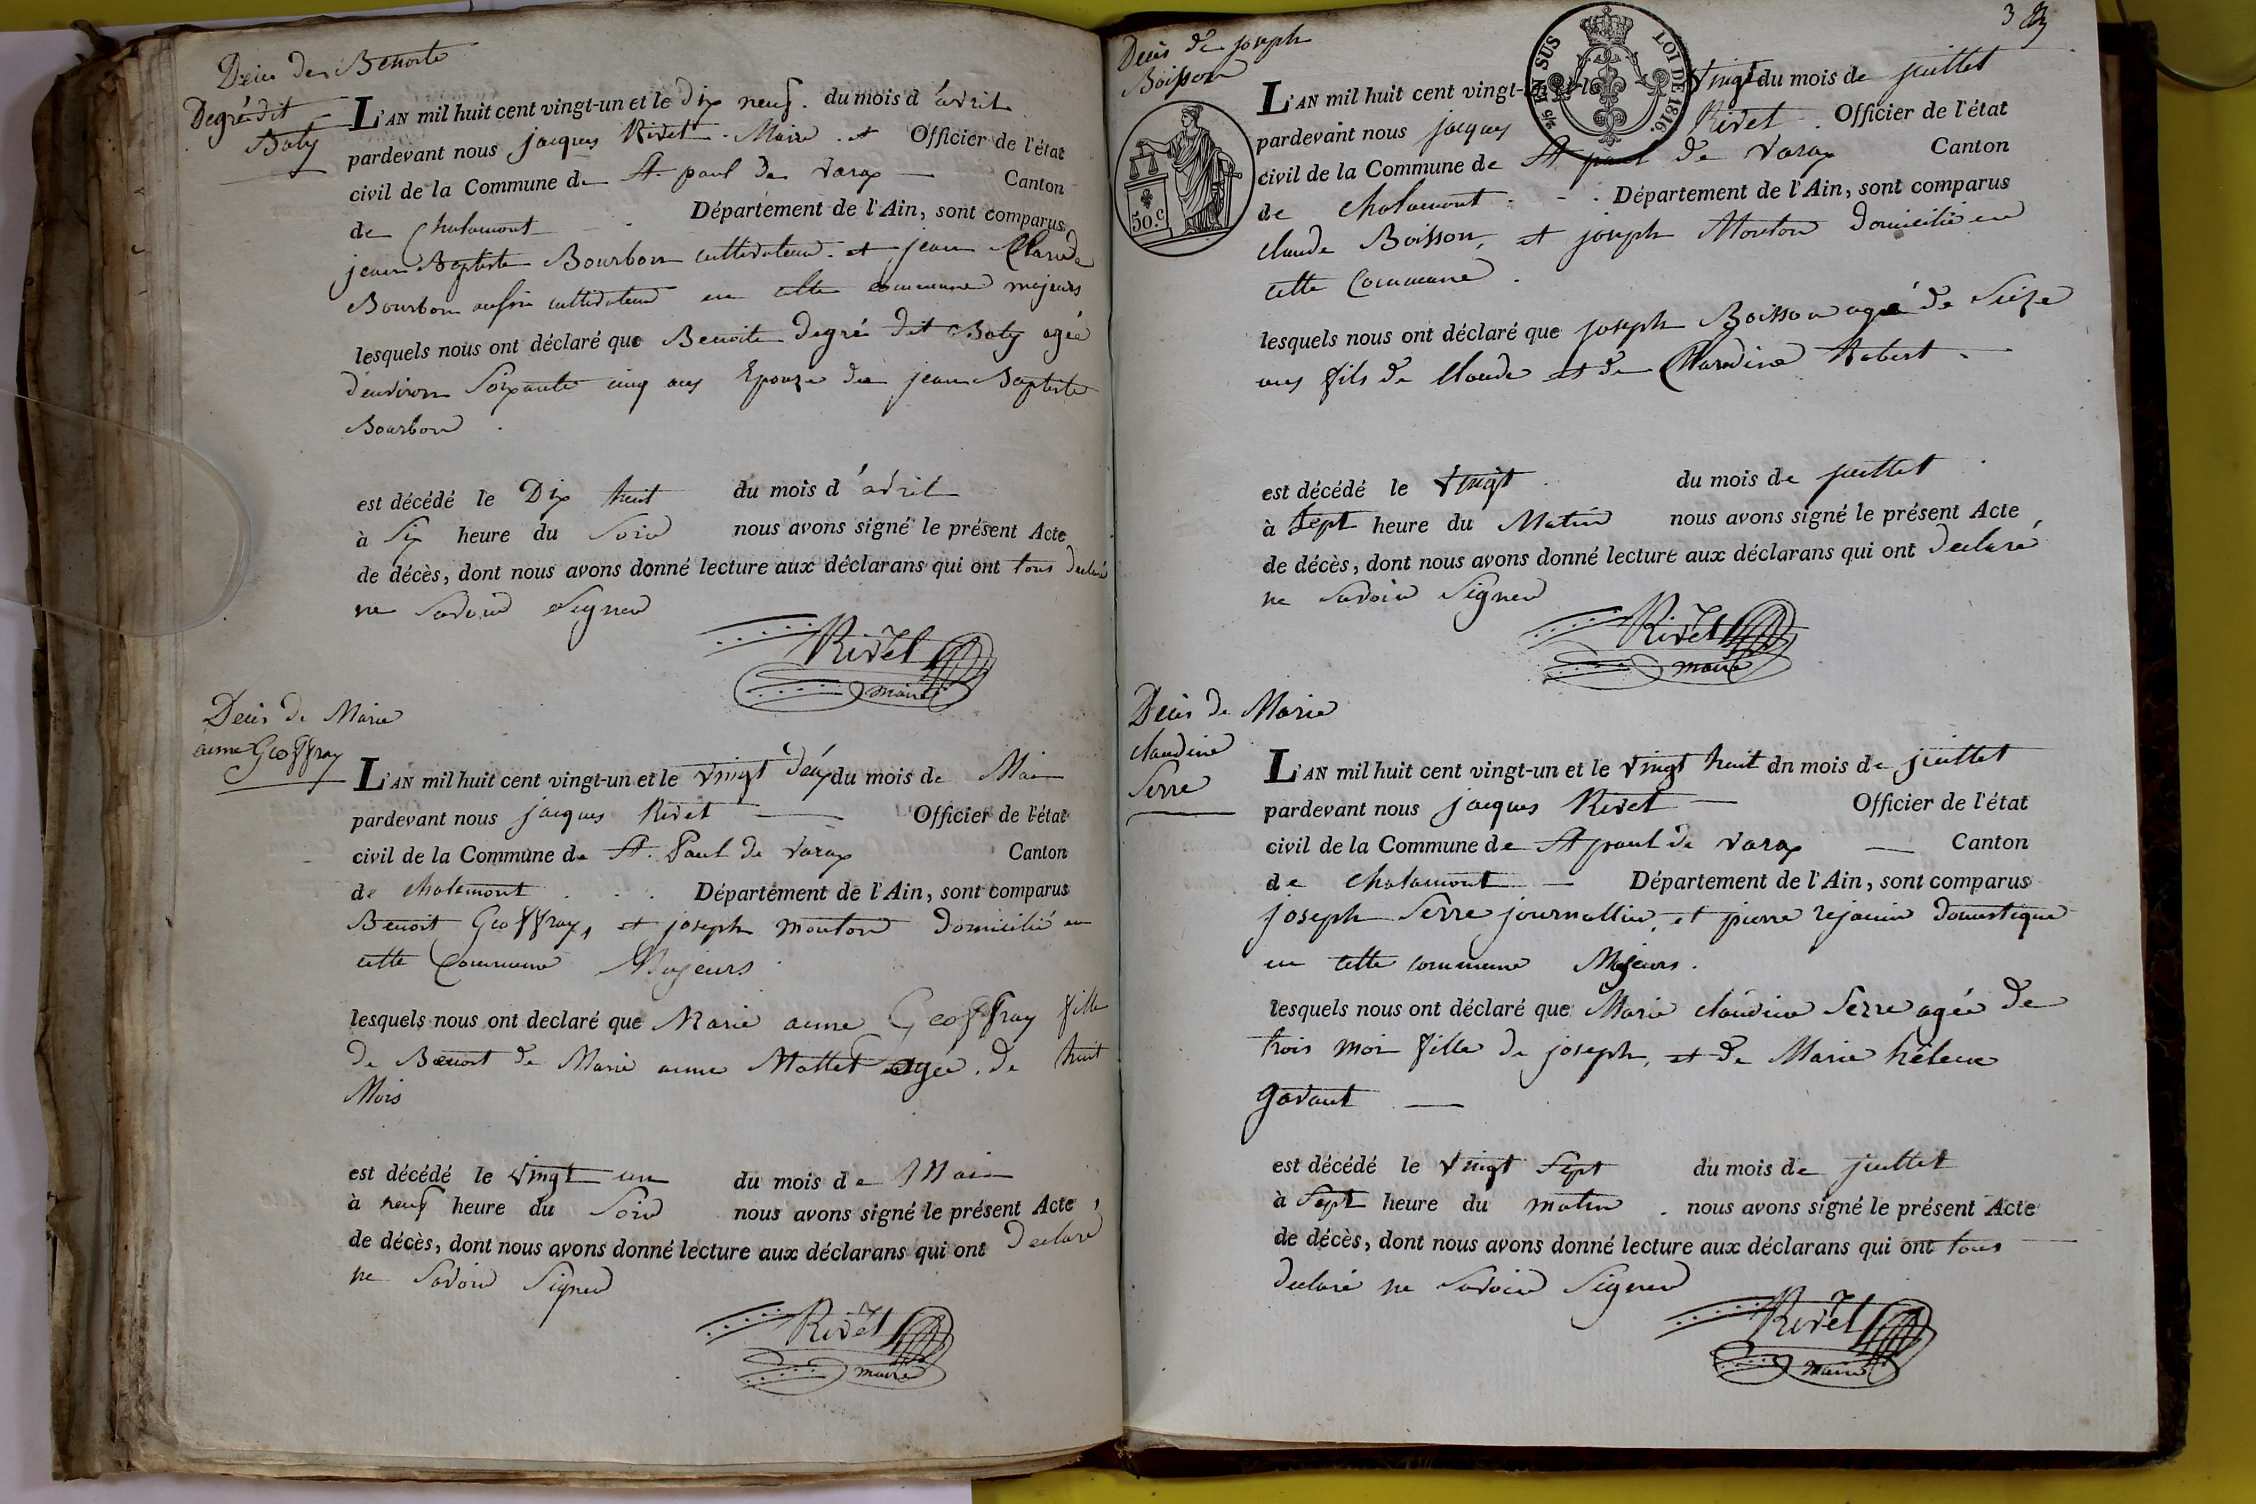 Décès de Benoite
Degré dit
Baty
L'AN mil huit cent vingt-un et le dix neuf du mois d'avril
pardevant nous jacques Rivet Maire et Officier de l'état
civil de la Commune de St paul de Varax Canton
de Chalamont Département de l'Ain, sont comparus
jean Baptiste Bourbon cultivateur et jean Claude
Bourbon aussi cultivateur en cette commune majeurs
lesquels nous ont déclaré que Benoite degré dit Baty agée
d'environ Soixante cinq ans Epouze de jean Baptiste
Bourbon
est décédé le Dix huit du mois d'avril
à Six heure du Soir nous avons signé le présent Acte
de décès, dont nous avons donné lecture aux déclarans qui ont tous declaré
ne Savoir Signer
Rivet
maire
Décès de Marie
anne Geoffray
L'AN mil huit cent vingt-un et le vingt deux du mois de Mai
pardevant nous jacques Rivet Officier de l'état
civil de la Commune de St. Paul de Varax Canton
de chalamont Département de l'Ain, sont comparus
Benoit Geoffray, et joseph mouton domicilié en
cette Commune Majeurs
lesquels nous ont declaré que Marie anne Geoffray fille
de Benoit de Marie anne Mottet agée de huit
Mois
est décédé le vingt un du mois de Mai
à neuf heure du Soir nous avons signé le présent Acte
de décès, dont nous avons donné lecture aux déclarans qui ont declaré
ne Savoir Signer
Rivet
maire
3
Décès de joseph
Boisson
2/5 EN SUS LOI DE 1816.
50.c
L'AN mil huit cent vingt-un et le vingt du mois de juillet
pardevant nous jacques Rivet Officier de l'état
civil de la Commune de St paul de Varax Canton
de chalamont Département de l'Ain, sont comparus
claude Boisson, et joseph Mouton domicilié en
cette Commune
lesquels nous ont déclaré que joseph Boisson agé de Seize
ans fils de Claude et de Claudine Robert
est décédé le vingt du mois de juillet
à Sept heure du Matin nous avons signé le présent Acte
de décès, dont nous avons donné lecture aux déclarans qui ont declaré
ne Savoir Signer
Rivet
maire
Décès de Marie
claudine
Serre
L'AN mil huit cent vingt-un et le vingt huit dn mois de juillet
pardevant nous jacques Rivet Officier de l'état
civil de la Commune de St paul de Varax Canton
de chalamont Département de l'Ain, sont comparus
joseph Serre journallier, et pierre rejanin domestique
en cette commune Majeurs.
lesquels nous ont déclaré que Marie claudine Serre agée de
trois moi fille de joseph, et de Marie hélene
gavant
est décédé le vingt Sept du mois de juillet
à Sept heure du matin nous avons signé le présent Acte
de décès, dont nous avons donné lecture aux déclarans qui ont tous
declaré ne Savoir Signer
Rivet
maire